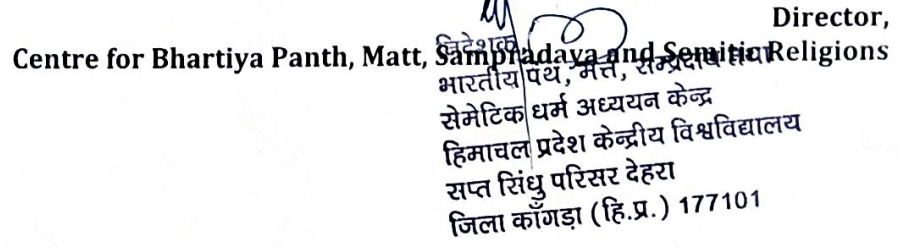 Director,
Centre for Bhartiya Panth, Matt, Sampradaya and Semitic Religions
निदेशक
भारतीय पंथ, मत्त, सम्प्रदाय तथा
सेमेटिक धर्म अध्ययन केन्द्र
हिमाचल प्रदेश केन्द्रीय विश्वविद्यालय
सप्त सिंधु परिसर देहरा
जिला काँगड़ा (हि.प्र.) 177101